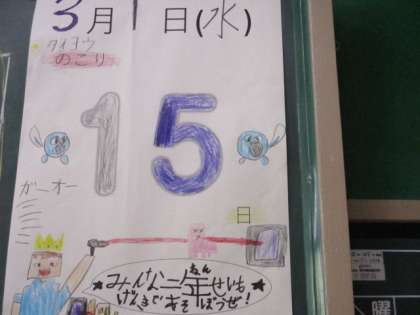 3月1日(水)
タイヨウ
のこり
15
日
ガーオー
みんな二年せいも
げんきであそぼうぜ!